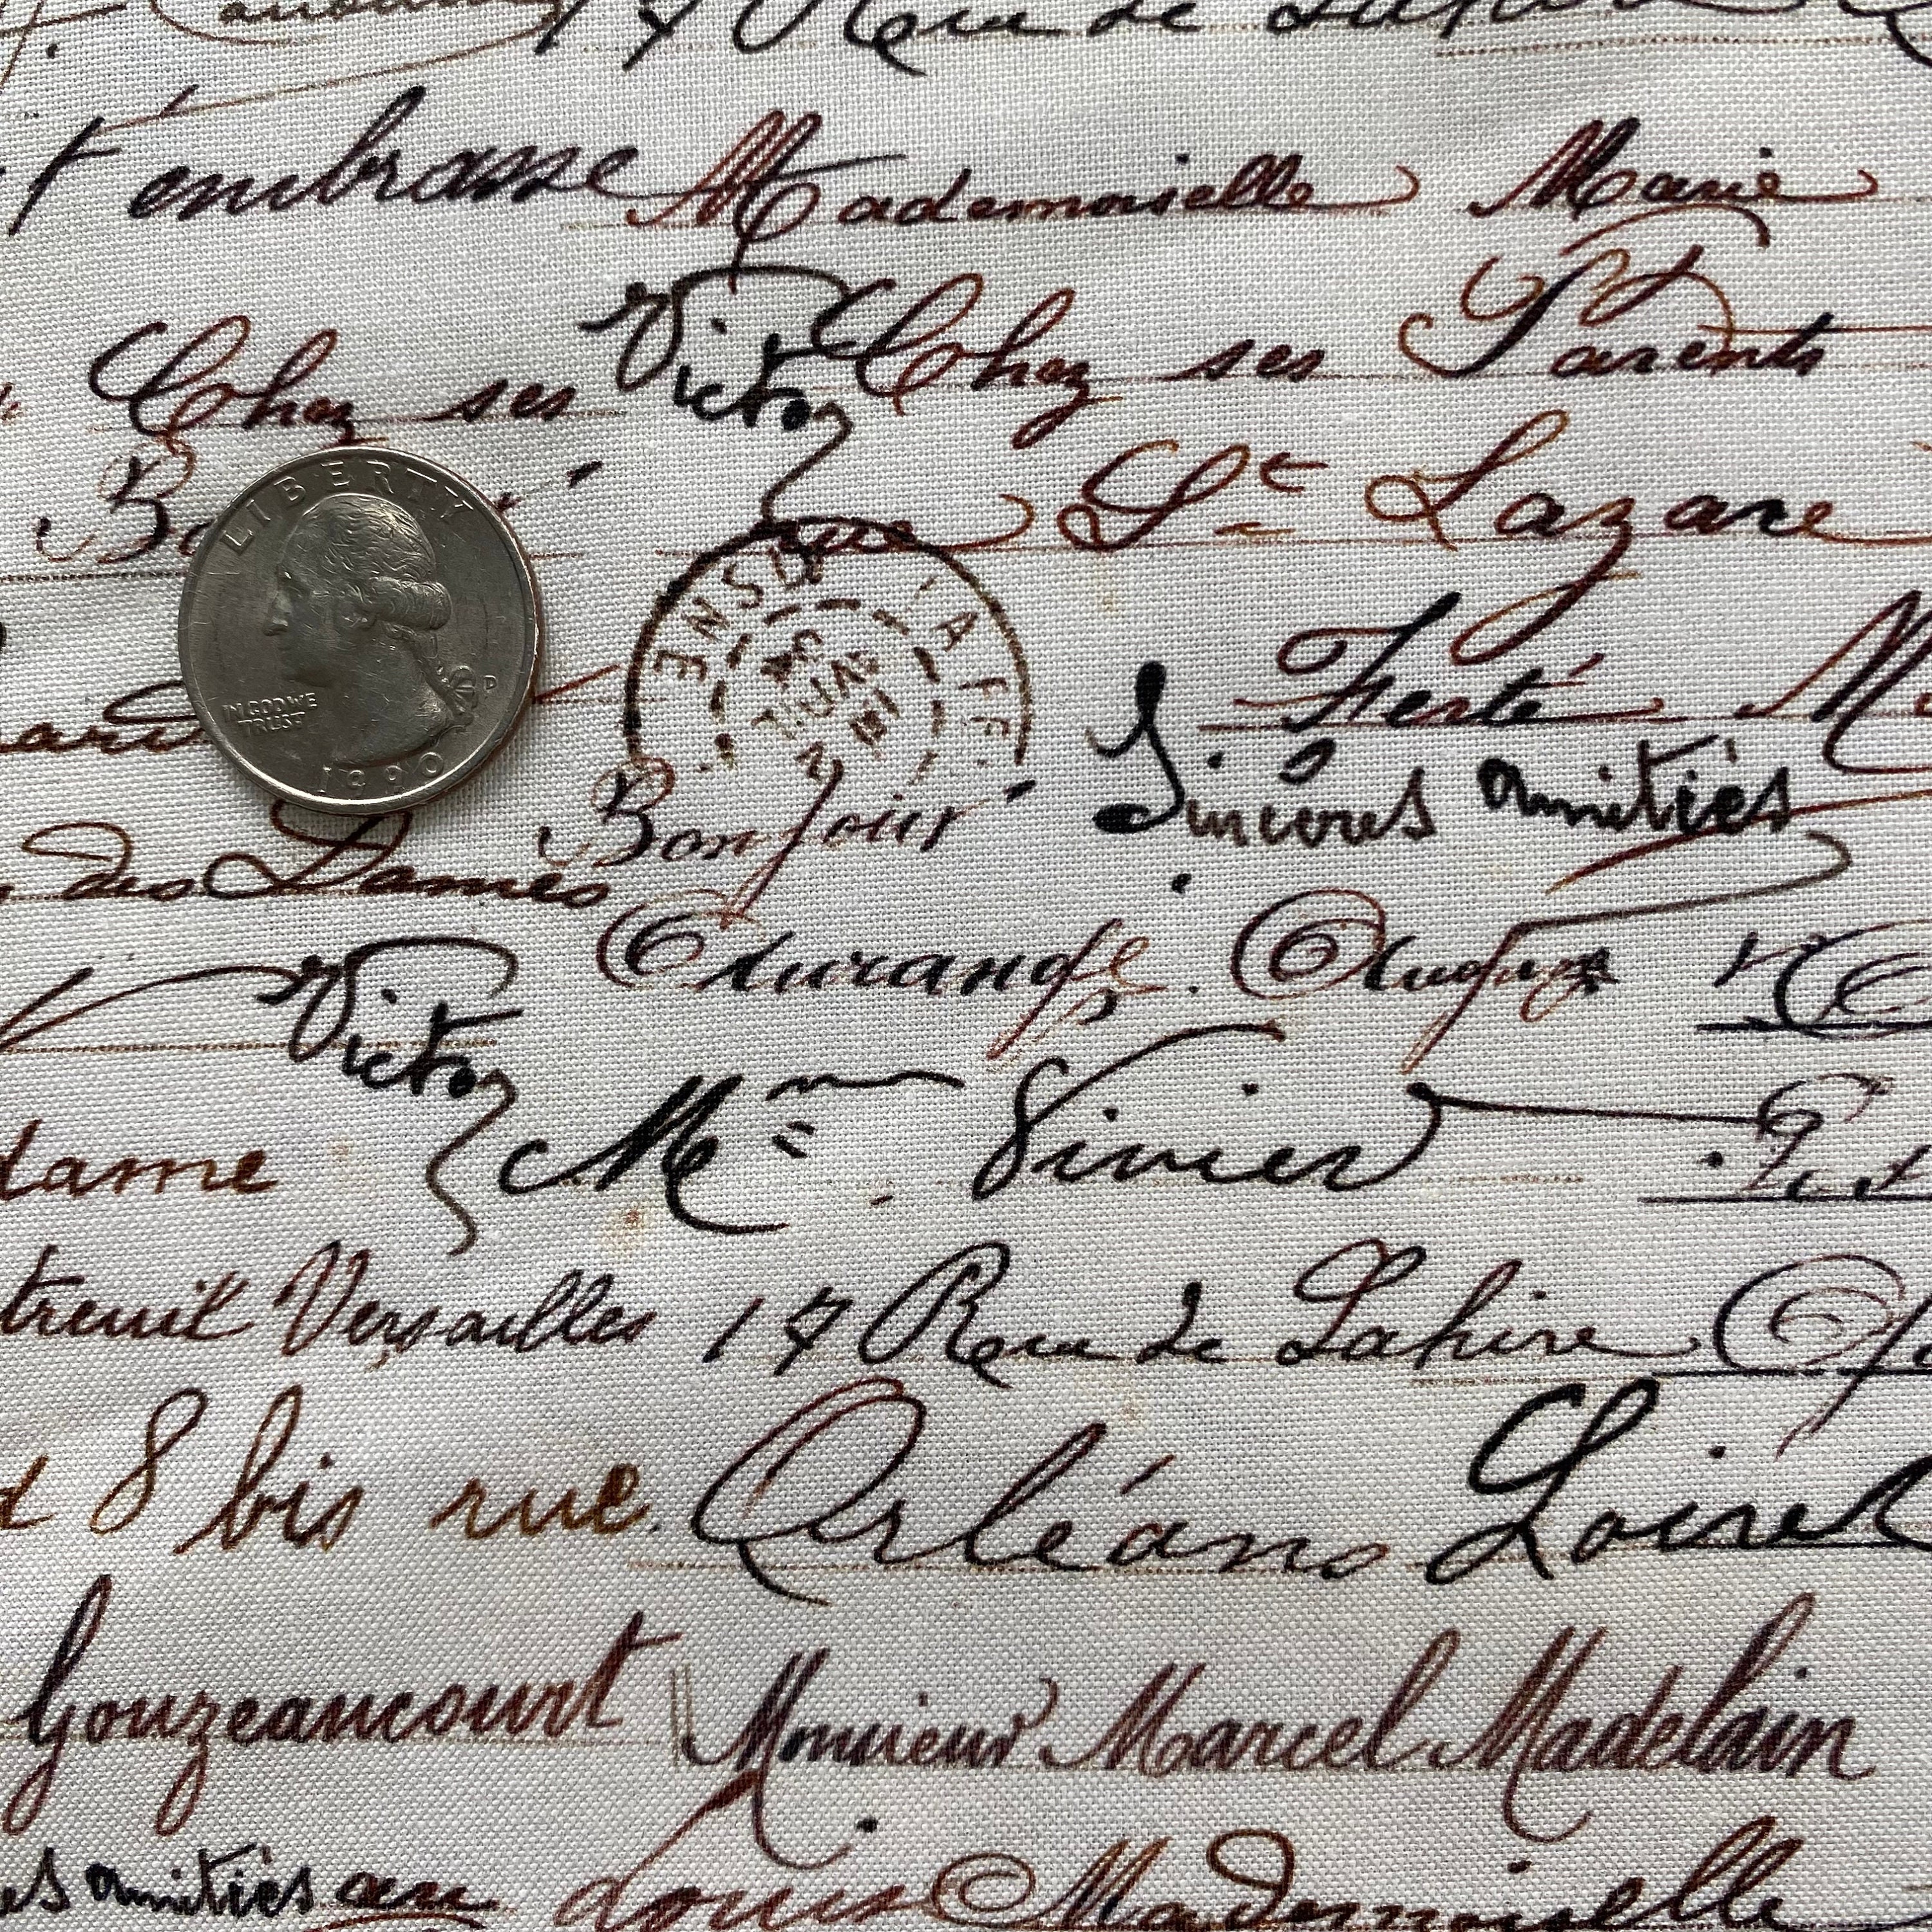 17 Rue de Lahire
t'embrasse Mademoiselle Marie
Victor
Chez ses Chez ses Parents
rue St Lazare
LIBERTY
IN GOD WE
TRUST
D
1990
Ferté
Bonjour Sincères amitiés
des Dames
Victor
Mme Vivier
dame
treuil Versailles 17 Rue de Lahire
8 bis rue Orléans Loiret
Gouzeaucourt Monsieur Marcel Madelain
amitiés Louis Mademoiselle